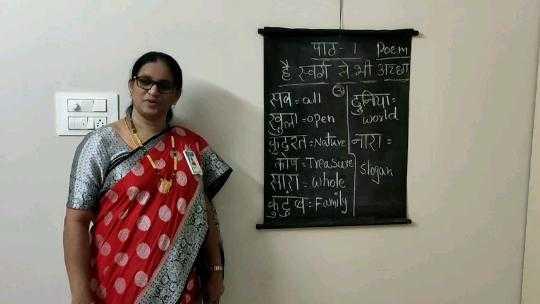 पाठ- 1 Poem
है स्वर्ग से भी अच्छा
सब = all
खुला = open
कुदरत = Nature
कोष = Treasure
सारा = whole
कुटुंब = Family
दुनिया =
world
नारा =
slogan